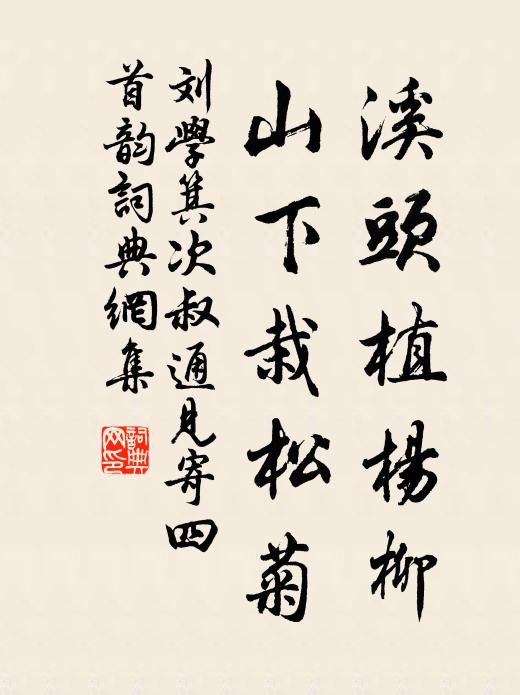 溪頭植楊柳
山下栽松菊
刘學箕次叔通見寄四
首韵詞典網集
詞典
网印